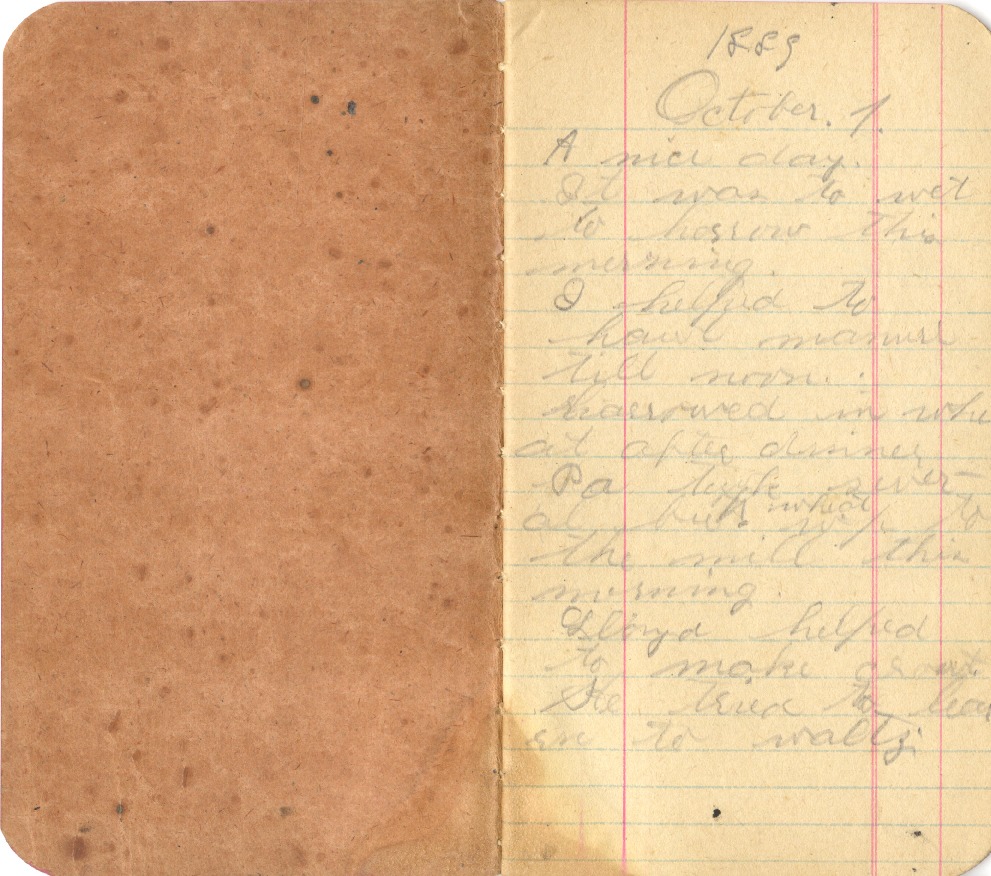 1889
October. 1.
A nice day.
It was to wet
to harrow this
morning.
I helped to
haul manure
till noon.
harrowed in whe
at after dinner
Pa took sever-
al wheat to
the mill this
morning.
Lloyd helped
to make
He tried to lear
en to waltz.